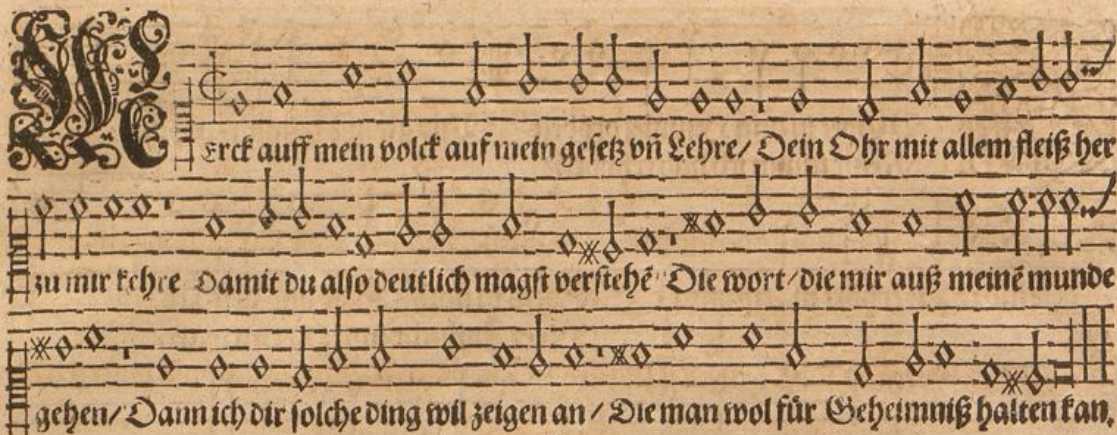 MErck auff mein volck auf mein gesetz vñ Lehre/ Dein Ohr mit allem fleiß her
zu mir kehre Damit du also deutlich magst verstehẽ Die wort/ die mir auß meinẽ munde
gehen/ Dann ich dir solche ding wil zeigen an/ Die man wol für Geheimniß halten kan.